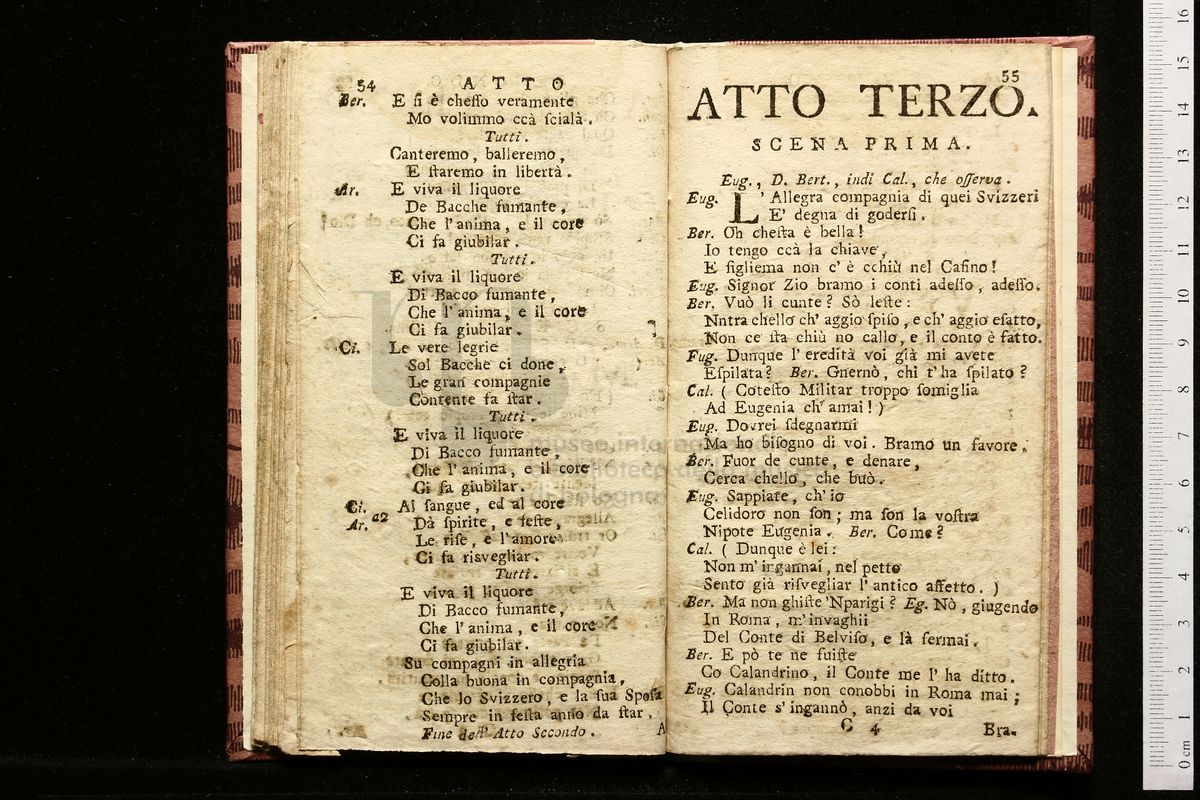 54 ATTO
Ber. E ſi è cheſſo veramente
Mo volimmo ccà ſcialà.
Tutti.
Canteremo, balleremo,
E ſtaremo in libertà.
Ar. E viva il liquore
De Bacche fumante,
Che l'anima, e il core
Ci fa giubilar.
Tutti.
E viva il liquore
Di Bacco fumante,
Che l'anima, e il core
Ci fa giubilar.
Ci. Le vere legrie
Sol Bacche ci done,
Le gran compagnie
Contente fa ſtar.
Tutti.
E viva il liquore
Di Bacco fumante,
Che l'anima, e il core
Ci fa giubilar.
Ci. Al ſangue, ed al core
Ar. a2 Dà ſpirite, e feſte,
Le riſe, e l'amore
Ci fa risvegliar.
Tutti.
E viva il liquore
Di Bacco fumante,
Che l'anima, e il core
Ci fa giubilar.
Su compagni in allegria
Colla buona in compagnia,
Che lo Svizzero, e la ſua Spoſa
Sempre in feſta anno da ſtar.
Fine dell' Atto Secondo.
A
55
ATTO TERZO.
SCENA PRIMA.
Eug., D. Bert., indi Cal., che oſſerva.
Eug. L'Allegra compagnia di quei Svizzeri
E' degna di goderſi.
Ber. Oh cheſta è bella!
Io tengo ccà la chiave,
E figliema non c'è cchiù nel Caſino!
Eug. Signor Zio bramo i conti adeſſo, adeſſo.
Ber. Vuò li cunte? Sò leſte:
Nntra chello ch'aggio ſpiſo, e ch'aggio eſatto,
Non ce ſta chiù no callo, e il conto è fatto.
Eug. Dunque l'eredità voi già mi avete
Eſpilata? Ber. Gnernò, chi t'ha ſpilato?
Cal. ( Coteſto Militar troppo ſomiglia
Ad Eugenia ch'amai! )
Eug. Dovrei ſdegnarmi
Ma ho biſogno di voi. Bramo un favore.
Ber. Fuor de cunte, e denare,
Cerca chello, che buò.
Eug. Sappiate, ch'io
Celidoro non ſon; ma ſon la voſtra
Nipote Eugenia. Ber. Come?
Cal. ( Dunque è lei:
Non m'ingannai, nel petto
Sento già riſvegliar l'antico affetto. )
Ber. Ma non ghiſte 'Nparigi? Eg. Nò, giugendo
In Roma, m'invaghii
Del Conte di Belviſo, e là fermai.
Ber. E pò te ne fuiſte
Co Calandrino, il Conte me l'ha ditto.
Eug. Calandrin non conobbi in Roma mai;
Il Conte s'ingannò, anzi da voi
C 4 Bra-